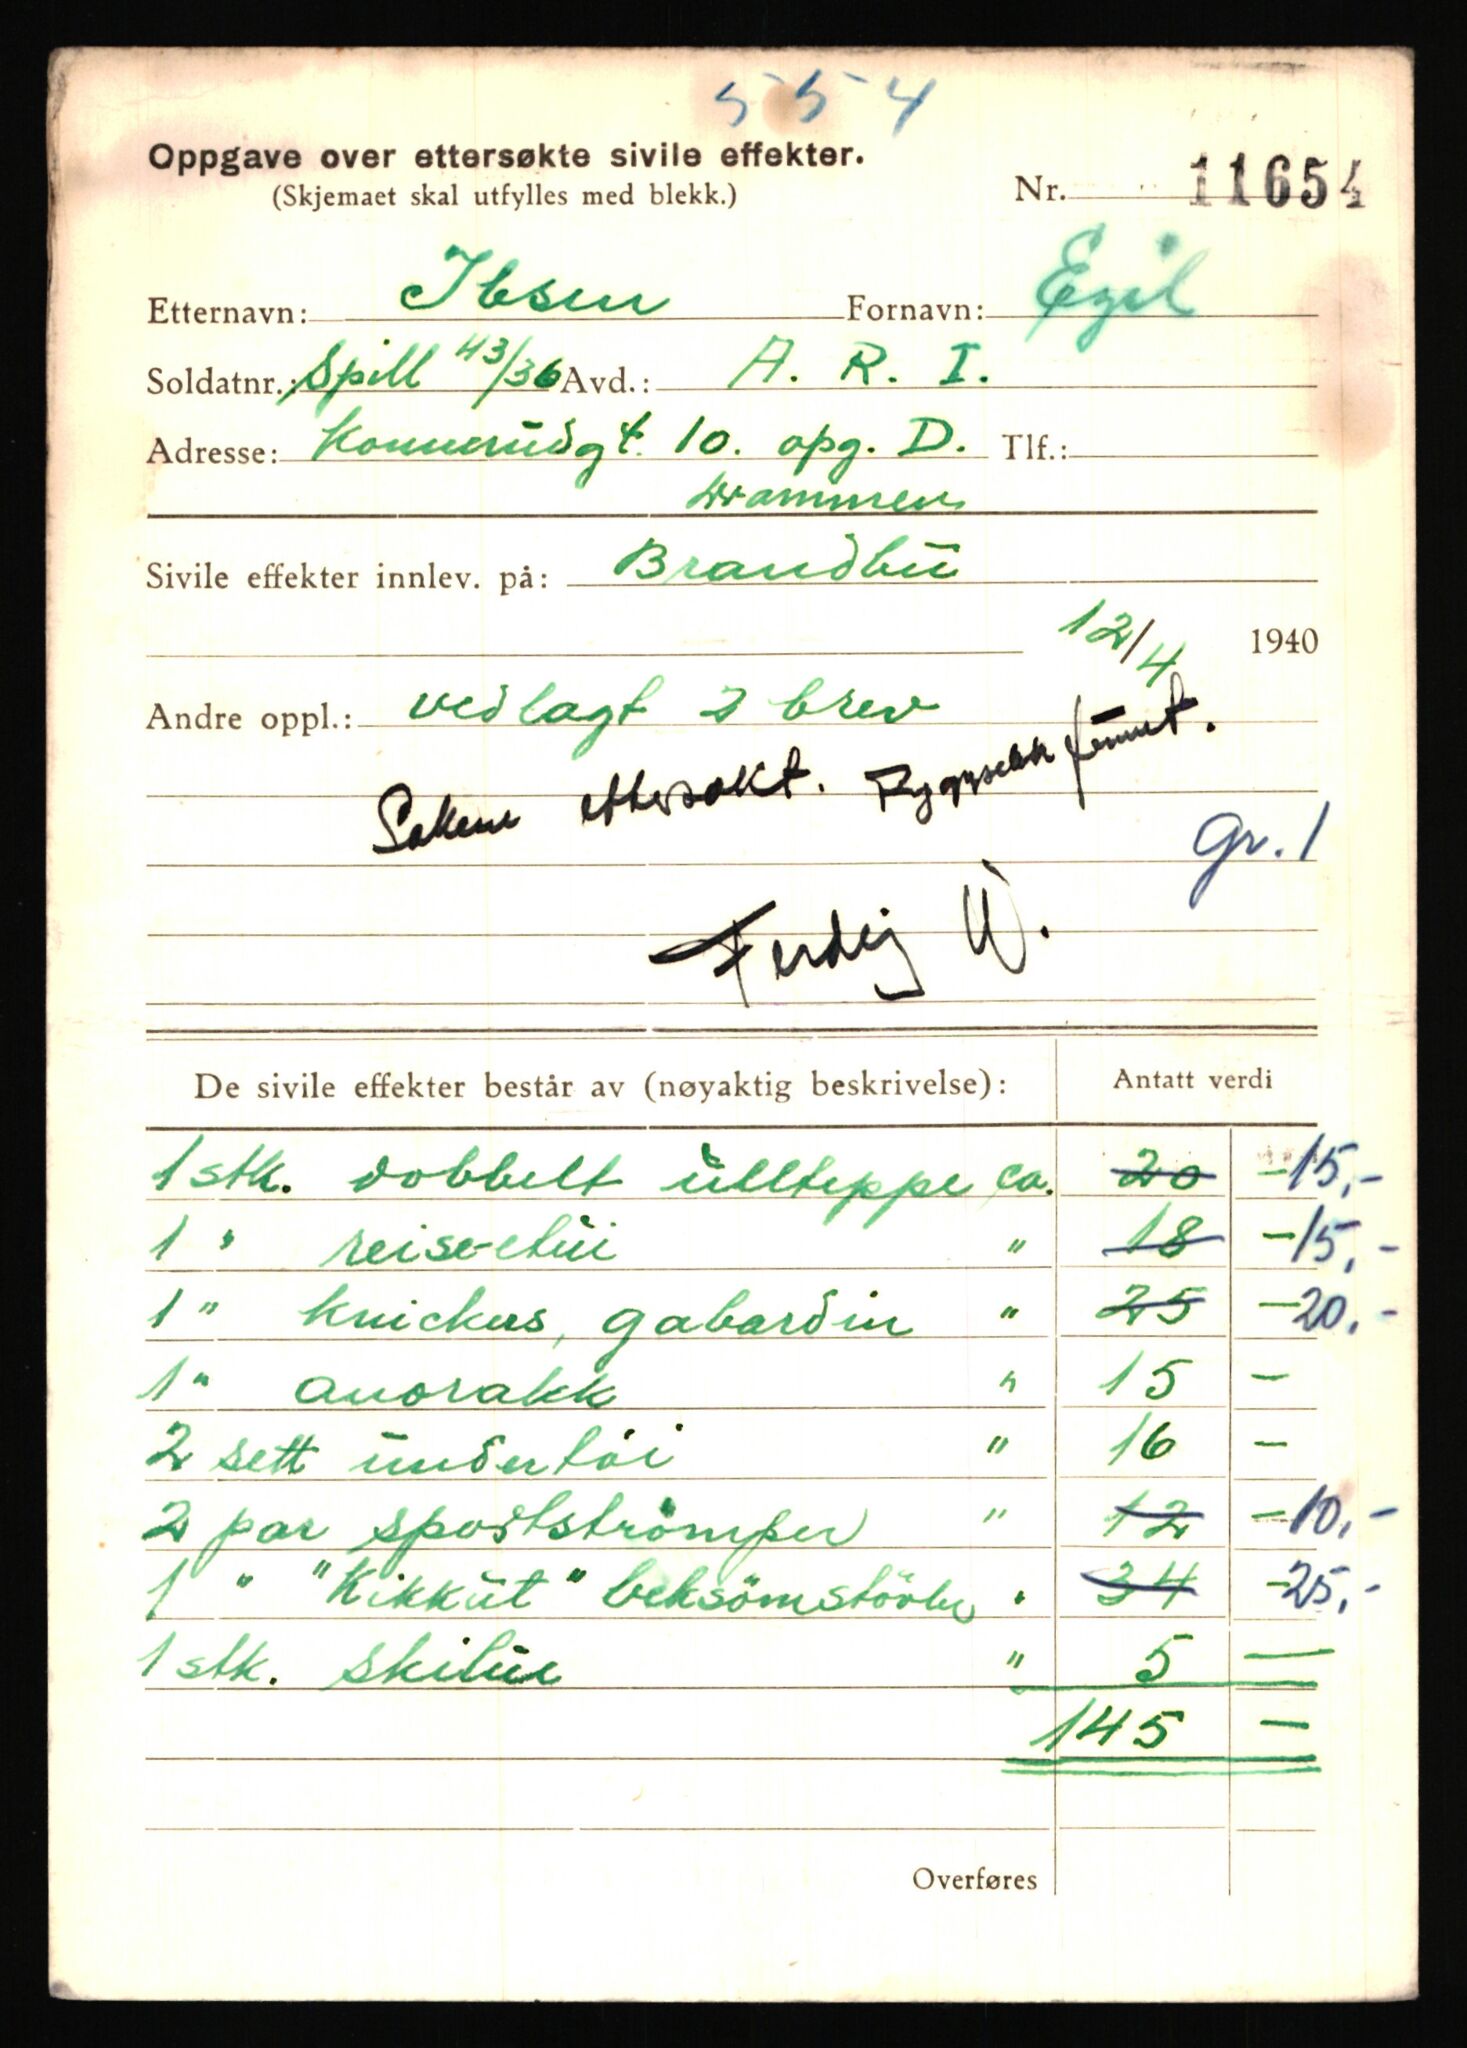 554
Oppgave over ettersøkte sivile effekter.
(Skjemaet skal utfylles med blekk.)
Nr. 11654
Etternavn: Ibsen Fornavn: Egil
Soldatnr.: Spill 43/36 Avd.: A. R. I.
Adresse: Konnerudgt. 10. opg. D. Tlf.:
Drammen
Sivile effekter innlev. på: Brandbu
12/4 1940
Andre oppl.: vedlagt 2 brev
Saken ettersøkt. Ryggsekk funnet.
Gr. 1
Ferdig W.
De sivile effekter består av (nøyaktig beskrivelse): Antatt verdi
1 stk. dobbelt ullteppe ca. 20 - 15,-
1 " reise-etui " 18 - 15,-
1 " knickers, gabardin " 25 - 20,-
1 " anorakk " 15 -
2 sett undertöi " 16 -
2 par sportströmper " 12 - 10,-
1 " "Kikkut" beksömstövler " 34 - 25,-
1 stk. skilue " 5 —
145 —
Overføres